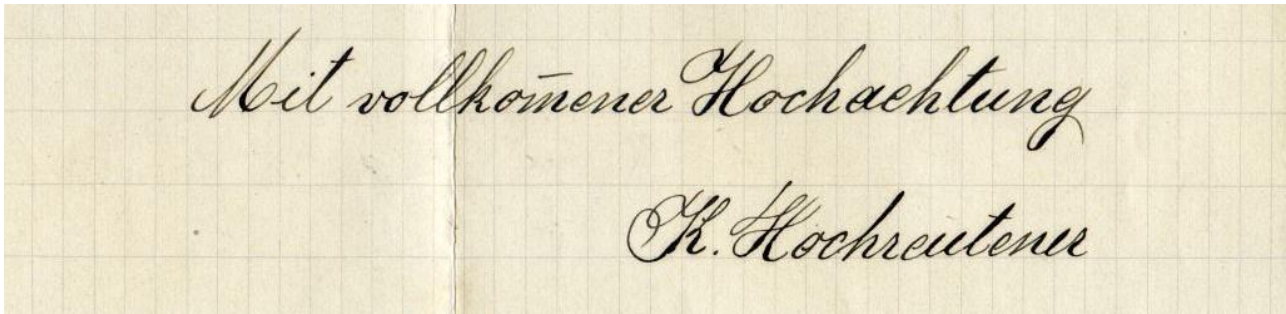 Mit vollkom̅ener Hochachtung
K. Hochreutener